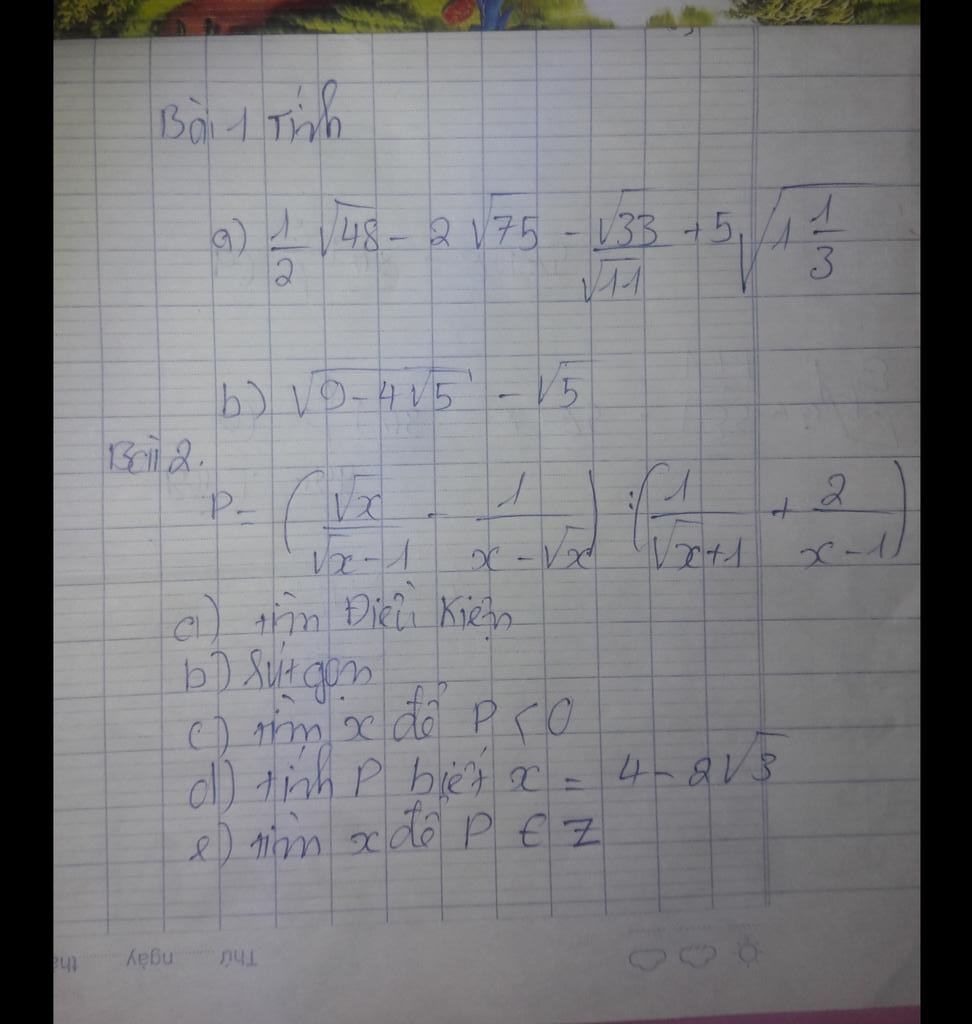 Bài 1 Tính
a) \frac{1}{2} \sqrt{48} - 2 \sqrt{75} - \frac{\sqrt{33}}{\sqrt{11}} + 5 \sqrt{1 \frac{1}{3}}
b) \sqrt{9 - 4\sqrt{5}} - \sqrt{5}
Bài 2.
P = ( \frac{\sqrt{x}}{\sqrt{x} - 1} - \frac{1}{x - \sqrt{x}} ) : ( \frac{1}{\sqrt{x} + 1} + \frac{2}{x - 1} )
a) tìm Điều Kiện
b) Rút gọn
c) tìm x để P < 0
d) tính P biết x = 4 - 2\sqrt{3}
e) tìm x để P ∈ Z
Thứ ngày thá